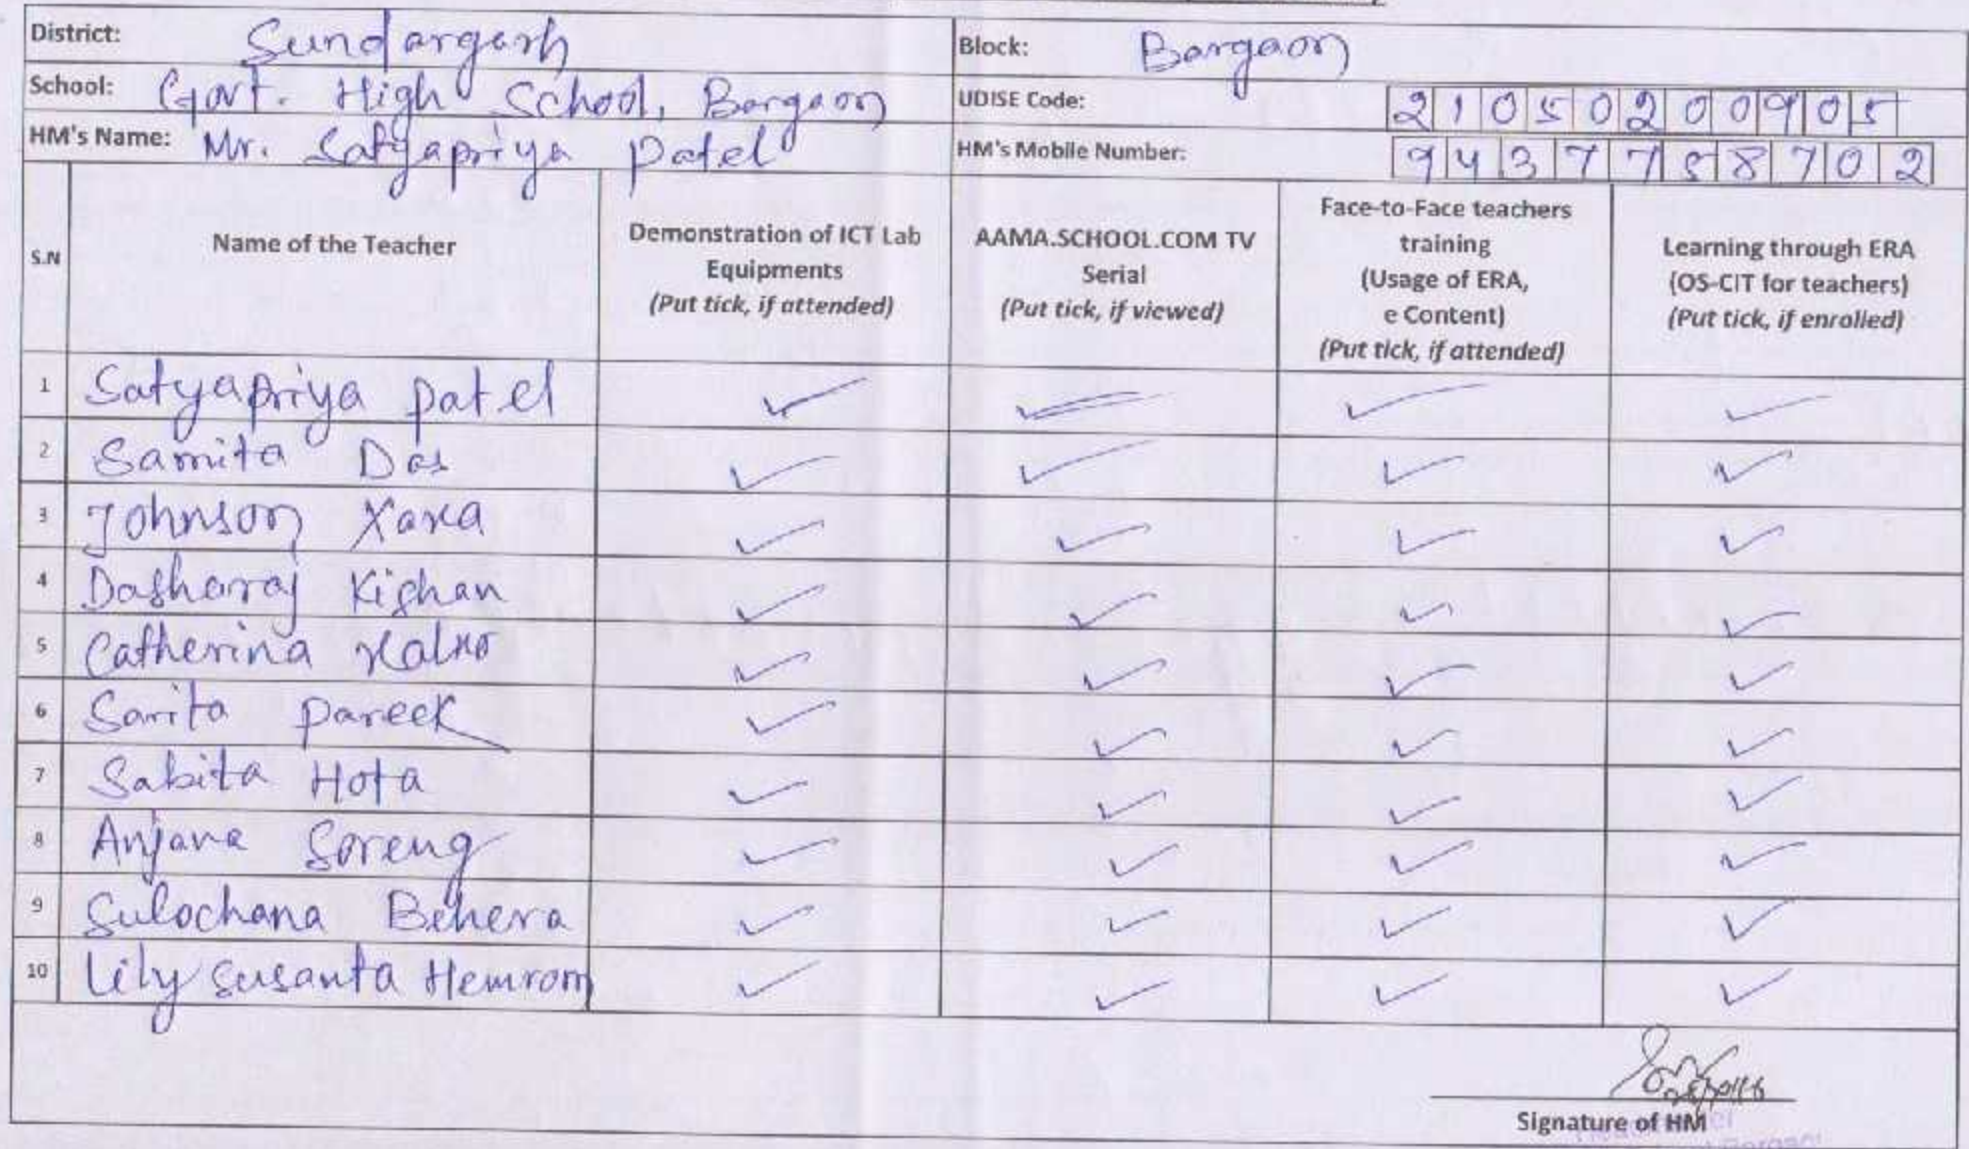 District: Sundargarh Block: Bargaon
School: Govt. High School, Bargaon UDISE Code: 21050200905
HM's Name: Mr. Satyapriya Patel HM's Mobile Number: 9437758702
S.N Name of the Teacher Demonstration of ICT Lab Equipments (Put tick, if attended) AAMA.SCHOOL.COM TV Serial (Put tick, if viewed) Face-to-Face teachers training (Usage of ERA, e Content) (Put tick, if attended) Learning through ERA (OS-CIT for teachers) (Put tick, if enrolled)
1 Satyapriya Patel ✓ ✓ ✓ ✓
2 Samita Das ✓ ✓ ✓ ✓
3 Johnson Xaxa ✓ ✓ ✓ ✓
4 Dasharaj Kishan ✓ ✓ ✓ ✓
5 Catherina Xalxo ✓ ✓ ✓ ✓
6 Sarita Pareek ✓ ✓ ✓ ✓
7 Sabita Hota ✓ ✓ ✓ ✓
8 Anjana Soreng ✓ ✓ ✓ ✓
9 Sulochana Behera ✓ ✓ ✓ ✓
10 Lily Susanta Hemrom ✓ ✓ ✓ ✓
Signature of HM